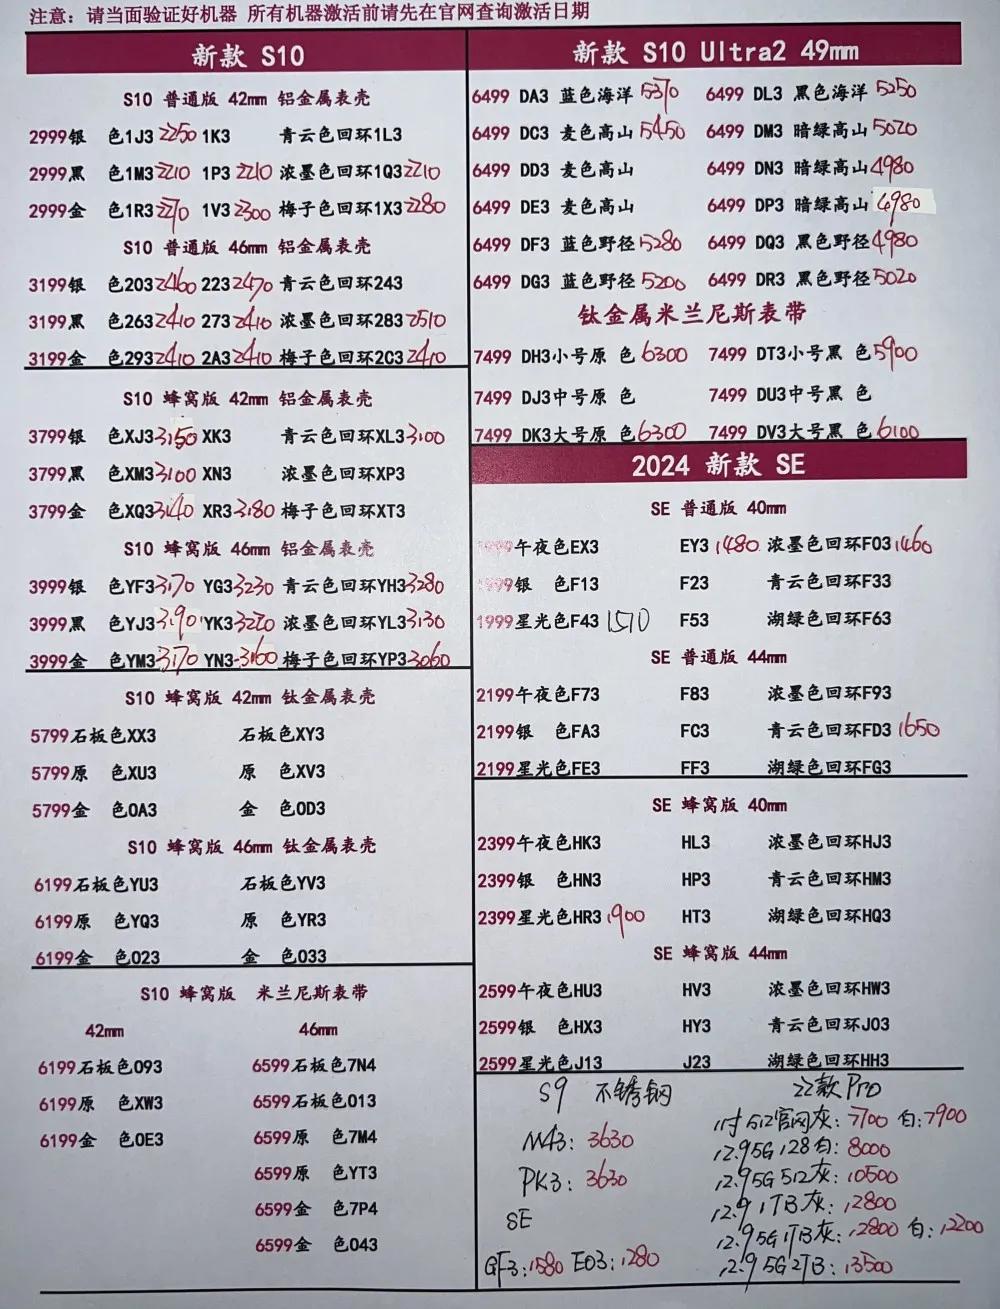 注意：请当面验证好机器 所有机器激活前请先在官网查询激活日期
新款 S10
S10 普通版 42mm 铝金属表壳
2999银 色1J3 2250 1K3 青云色回环1L3
2999黑 色1M3 2210 1P3 2210 浓墨色回环1Q3 2210
2999金 色1R3 1V3 2300 梅子色回环1X3 2280
S10 普通版 46mm 铝金属表壳
3199银 色203 2460 223 2470 青云色回环243
3199黑 色263 2410 273 2410 浓墨色回环283 2510
3199金 色293 2410 2A3 2410 梅子色回环2C3 2410
S10 蜂窝版 42mm 铝金属表壳
3799银 色XJ3 3150 XK3 青云色回环XL3 3100
3799黑 色XM3 3100 XN3 浓墨色回环XP3
3799金 色XQ3 3140 XR3 3180 梅子色回环XT3
S10 蜂窝版 46mm 铝金属表壳
3999银 色YF3 3170 YG3 3230 青云色回环YH3 3280
3999黑 色YJ3 3190 YK3 浓墨色回环YL3 3130
3999金 色YM3 3170 YN3 3160 梅子色回环YP3 3060
S10 蜂窝版 42mm 钛金属表壳
5799石板色XX3 石板色XY3
5799原 色XU3 原 色XV3
5799金 色0A3 金 色0D3
S10 蜂窝版 46mm 钛金属表壳
6199石板色YU3 石板色YV3
6199原 色YQ3 原 色YR3
6199金 色023 金 色033
S10 蜂窝版 米兰尼斯表带
42mm 46mm
6199石板色093 6599石板色7N4
6199原 色XW3 6599石板色013
6199金 色0E3 6599原 色7M4
6599原 色YT3
6599金 色7P4
6599金 色043
新款 S10 Ultra2 49mm
6499 DA3 蓝色海洋 5370 6499 DL3 黑色海洋 5250
6499 DC3 麦色高山 5450 6499 DM3 暗绿高山 5020
6499 DD3 麦色高山 6499 DN3 暗绿高山 4980
6499 DE3 麦色高山 6499 DP3 暗绿高山 4980
6499 DF3 蓝色野径 5280 6499 DQ3 黑色野径 4980
6499 DG3 蓝色野径 5200 6499 DR3 黑色野径 5020
钛金属米兰尼斯表带
7499 DH3小号原 色 6300 7499 DT3小号黑 色 5900
7499 DJ3中号原 色 7499 DU3中号黑 色
7499 DK3大号原 色 6300 7499 DV3大号黑 色 6100
2024 新款 SE
SE 普通版 40mm
1999午夜色EX3 EY3 1480 浓墨色回环F03 1460
1999银 色F13 F23 青云色回环F33
1999星光色F43 1510 F53 湖绿色回环F63
SE 普通版 44mm
2199午夜色F73 F83 浓墨色回环F93
2199银 色FA3 FC3 青云色回环FD3 1650
2199星光色FE3 FF3 湖绿色回环FG3
SE 蜂窝版 40mm
2399午夜色HK3 HL3 浓墨色回环HJ3
2399银 色HN3 HP3 青云色回环HM3
2399星光色HR3 1900 HT3 湖绿色回环HQ3
SE 蜂窝版 44mm
2599午夜色HU3 HV3 浓墨色回环HW3
2599银 色HX3 HY3 青云色回环J03
2599星光色J13 J23 湖绿色回环HH3
S9 不锈钢
M43: 3630
PK3: 3630
SE
GF3: 1580 E03: 1280
22款 Pro
11寸 512官网灰: 7700 白: 7900
12.9 5G 128白: 8000
12.9 5G 512灰: 10500
12.9 1TB灰: 12800
12.9 5G 1TB灰: 12800 白: 12200
12.9 5G 2TB: 13500